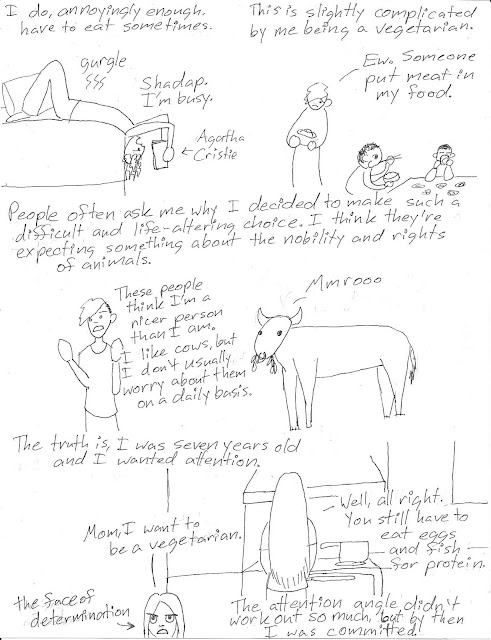 I do, annoyingly enough.
have to eat sometimes.
This is slightly complicated
by me being a vegetarian.
gurgle
Shadap.
I'm busy.
Agatha
Cristie
Ew. Someone
put meat in
my food.
People often ask me why I decided to make such a
difficult and life-altering choice. I think they're
expecting something about the nobility and rights
of animals.
These people
think I'm a
nicer person
than I am.
I like cows, but
I don't usually
worry about them
on a daily basis.
Mmrooo
The truth is, I was seven years old
and I wanted attention.
Mom, I want to
be a vegetarian.
Well, all right.
You still have to
eat eggs
and fish
for protein.
the face of
determination
The attention angle didn't
work out so much, but by then
I was committed!